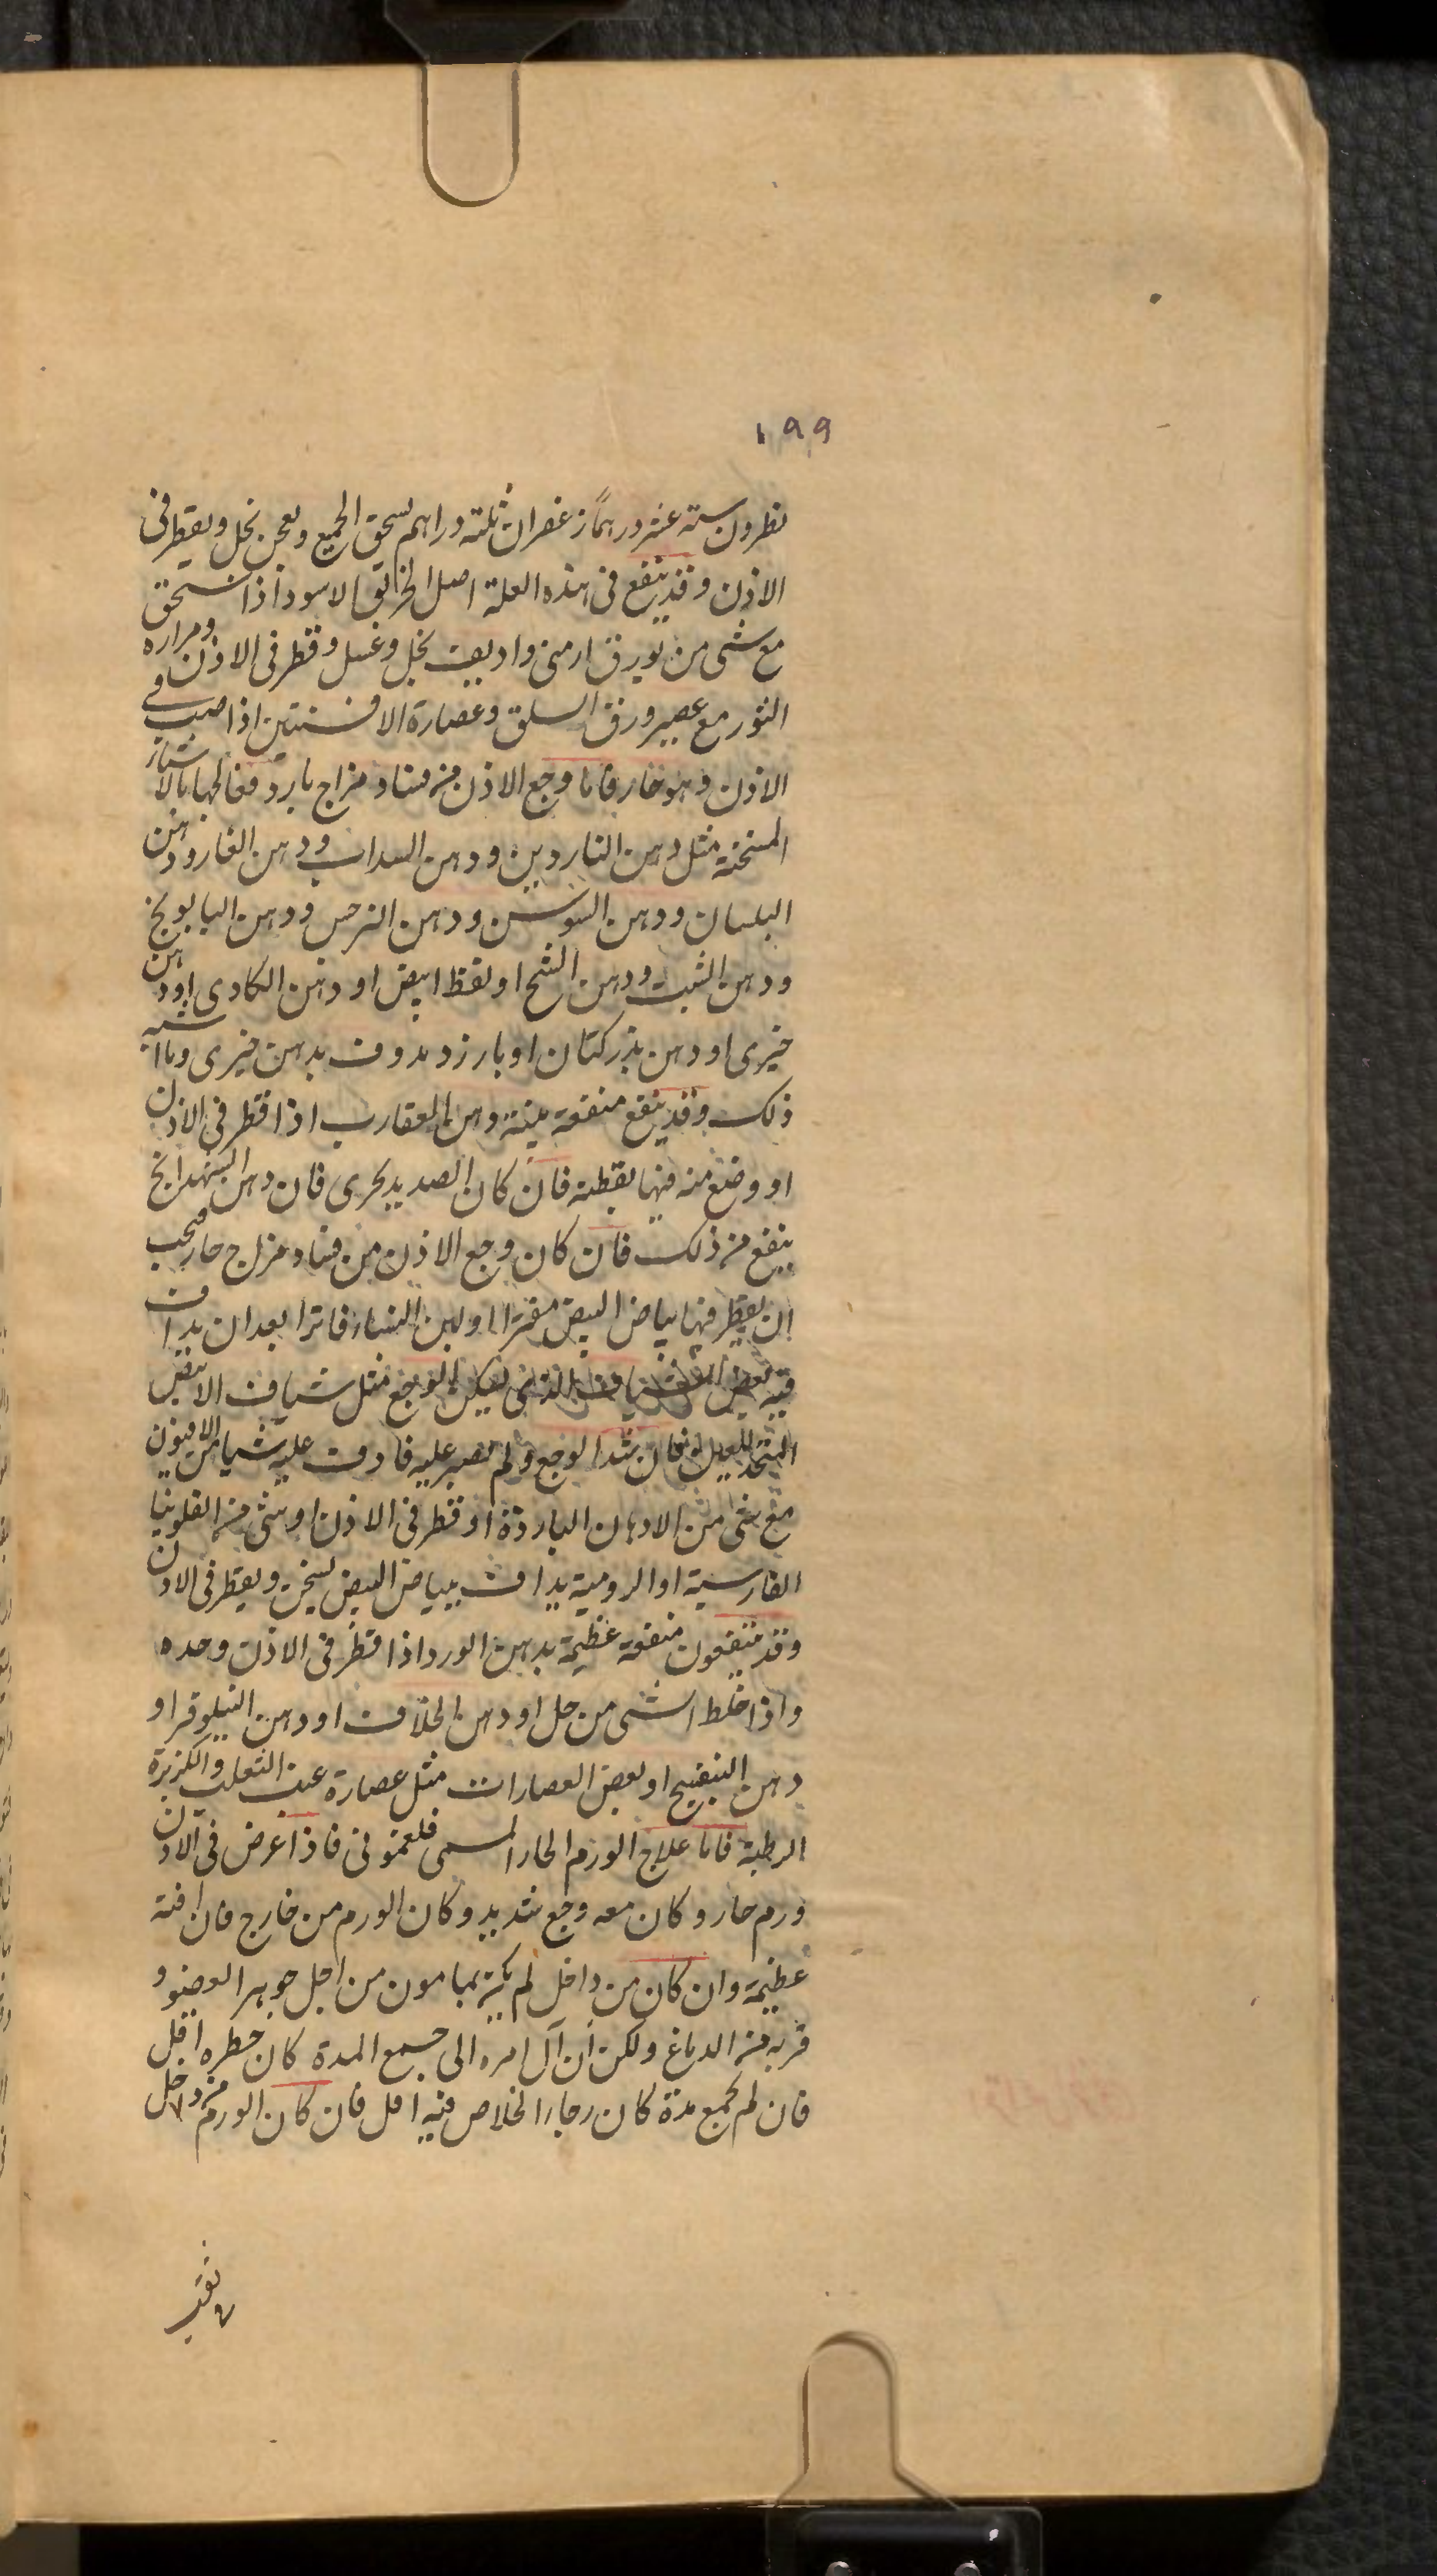 ١٩٩
نطرون ستة عشر درهمًا زعفران ثلثة دراهم يسحق الجميع ويعجن بخل ويقطر فى
الاذن وقد ينفع فى هذه العلة اصل الخربق الاسود اذا سحق
مع شى من بورق ارمنى واديف بخل وعسل وقطر فى الاذن ومراره
الثور مع عصير ورق السلق وعصارة الافسنتين اذا صب فى
الاذن وهو حار فاما وجع الاذن من فساد مزاج بارد فعالجها بالاشياء
المسخنة مثل دهن الناردين ودهن السداب ودهن الغار ودهن
البلسان ودهن السوسن ودهن النرجس ودهن البابونج
ودهن الشبت ودهن الشيح او نفط ابيض او دهن الكادى او دهن
خيرى او دهن بزر كتان او بارزد مدوف بدهن خيرى وما اشبه
ذلك وقد ينفع منفعة بينة دهن العقارب اذا قطر فى الاذن
او وضع منه فيها بقطنة فان كان الصديد يجرى فان دهن الشهدانج
ينفع من ذلك فان كان وجع الاذن من فساد مزاج حار فيجب
ان يقطر فيها بياض البيض مفترا او لبن النساء فاترا بعد ان يداف
فيه بعض الشيافات الذى يسكن الوجع مثل شياف الابيض
المتخذ للعين فان شتد الوجع ولم يصبر عليه فادف عليه شيا من الافيون
مع شى من الادهان الباردة او قطر فى الاذن او شى من الفلونيا
الفارسية او الرومية يداف ببياض البيض يسخن ويقطر فى الاذن
وقد ينتفعون منفعة عظيمة بدهن الورد اذا قطر فى الاذن وحده
واذا خلط اشى من خل او دهن الخلاف او دهن النيلوفر او
دهن البنفسج او بعض العصارات مثل عصارة عنب الثعلب والكزبرة
الرطبة فاما علاج الورم الحار المسمى فلغمونى فاذا عرض فى الاذن
ورم حار وكان معه وجع شديد وكان الورم من خارج فان افته
عظيمة وان كان من داخل لم يكن بمامون من اجل جوهر العضو و
قربه من الدماغ ولكن ان آل امره الى جمع المدة كان خطره اقل
فان لم يجمع مدة كان رجاء الخلاص فيه اقل فان كان الورم من داخل